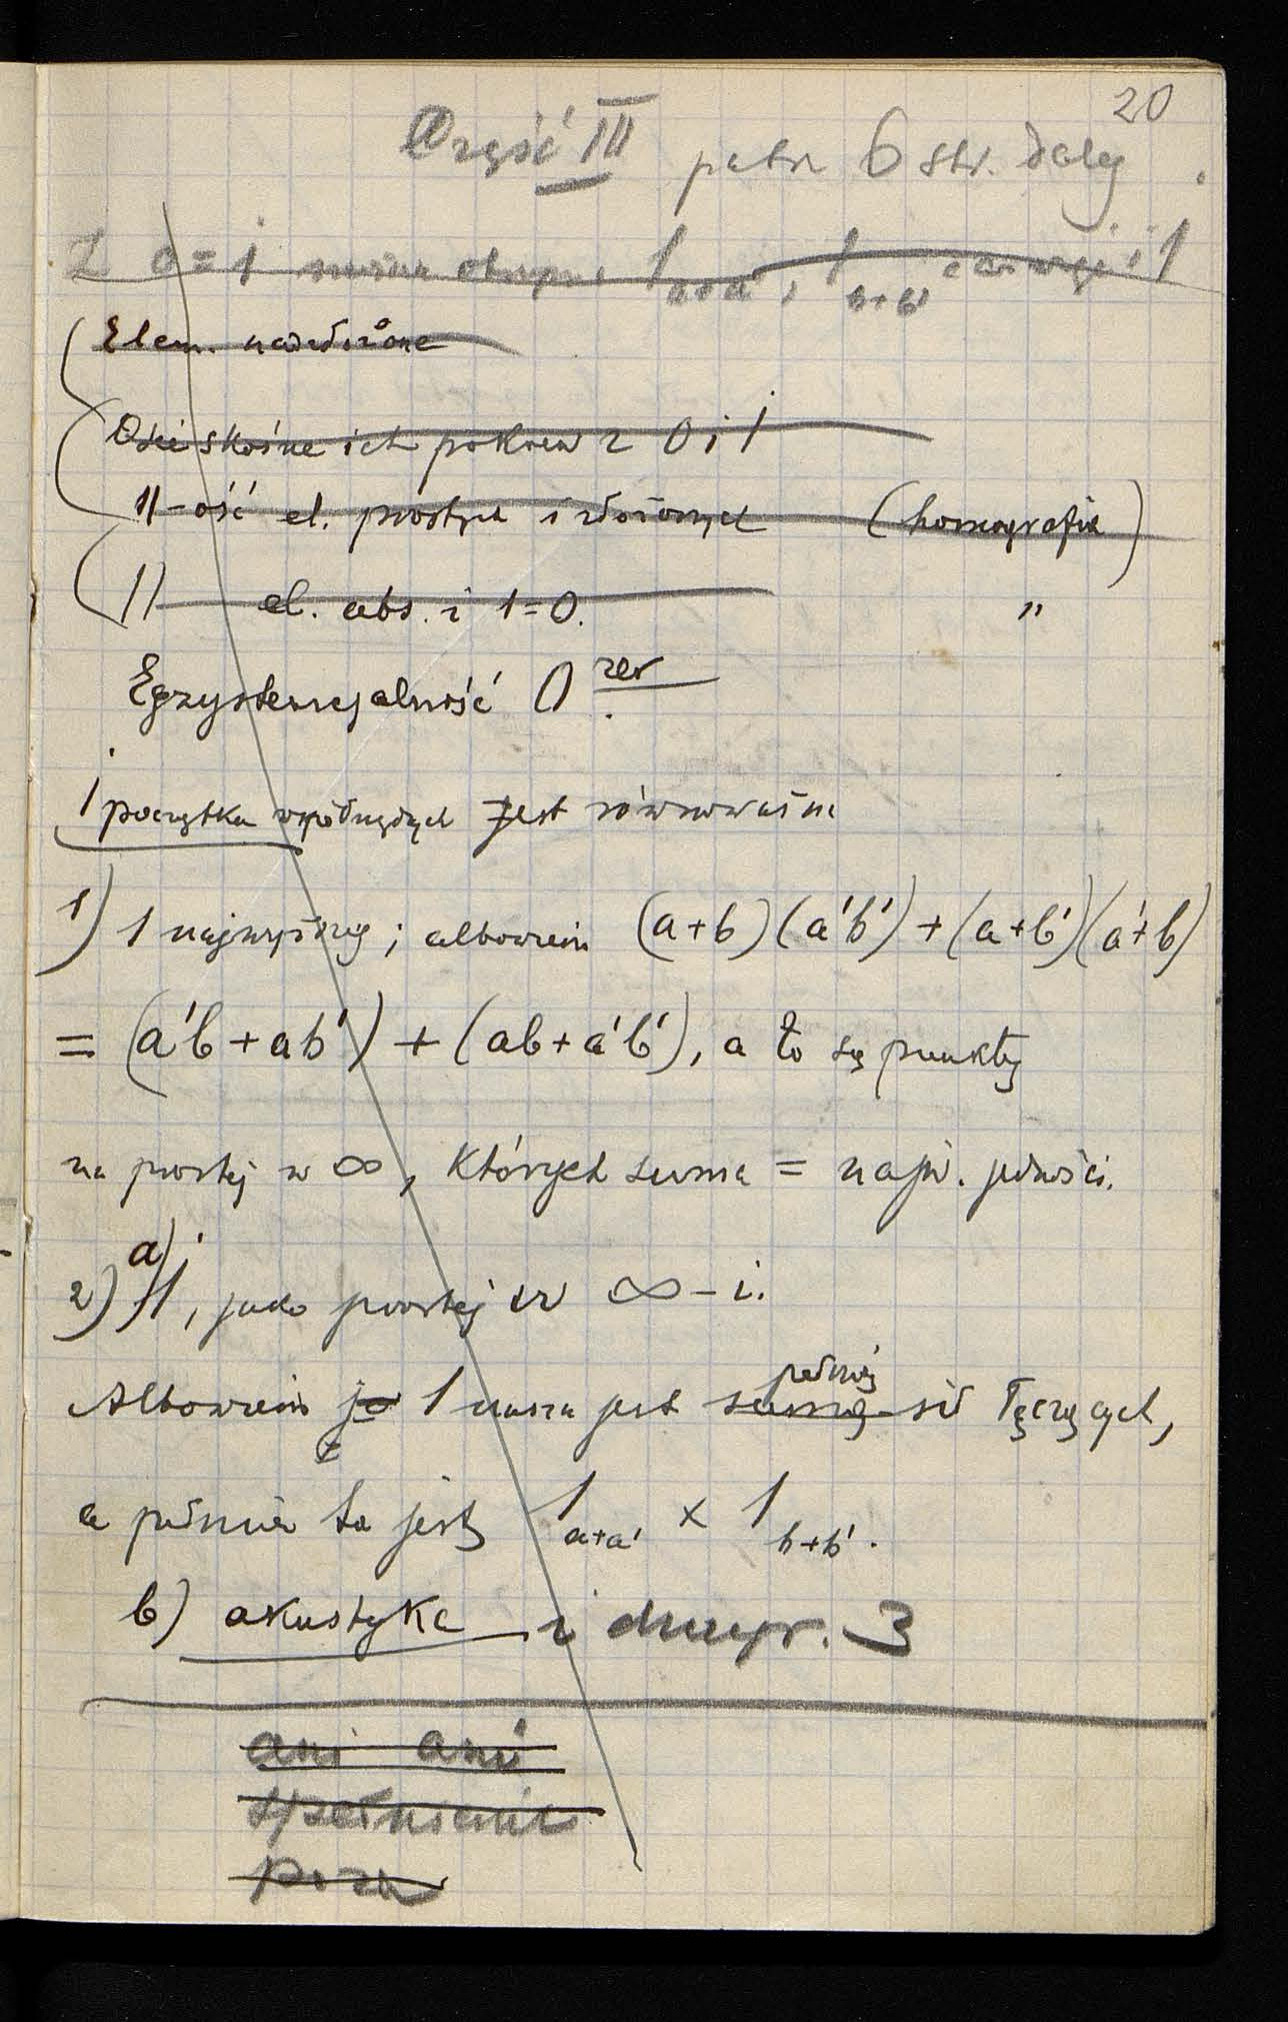 20
Część III patrz 6 str. dalej
Z 0=1 można 1 a+a', 1 b+b' i 1
Elem. nadzłożone
Osie skośne ich pokrew z 0 i 1
||-ość el. prostych i złożonych (homografia)
|| — el. abs. i 1=0. "
Egzystencjalność 0 rzw
1 początku współrzędnych jest równoważna
1) 1 najwyższej; albowiem (a+b)(a'b')+(a+b')(a'+b)
= (a'b+ab')+(ab+a'b'), a to są punkty
na prostej w ∞, których suma = najw. jedności.
2) a) 1, jako prostej w ∞-i.
Albowiem 1 nasza jest sumą pełnią sił łączących,
a pełnia ta jest 1 a+a' × 1 b+b'.
b) akustyka i 3
ani ani
spełnienie
poza